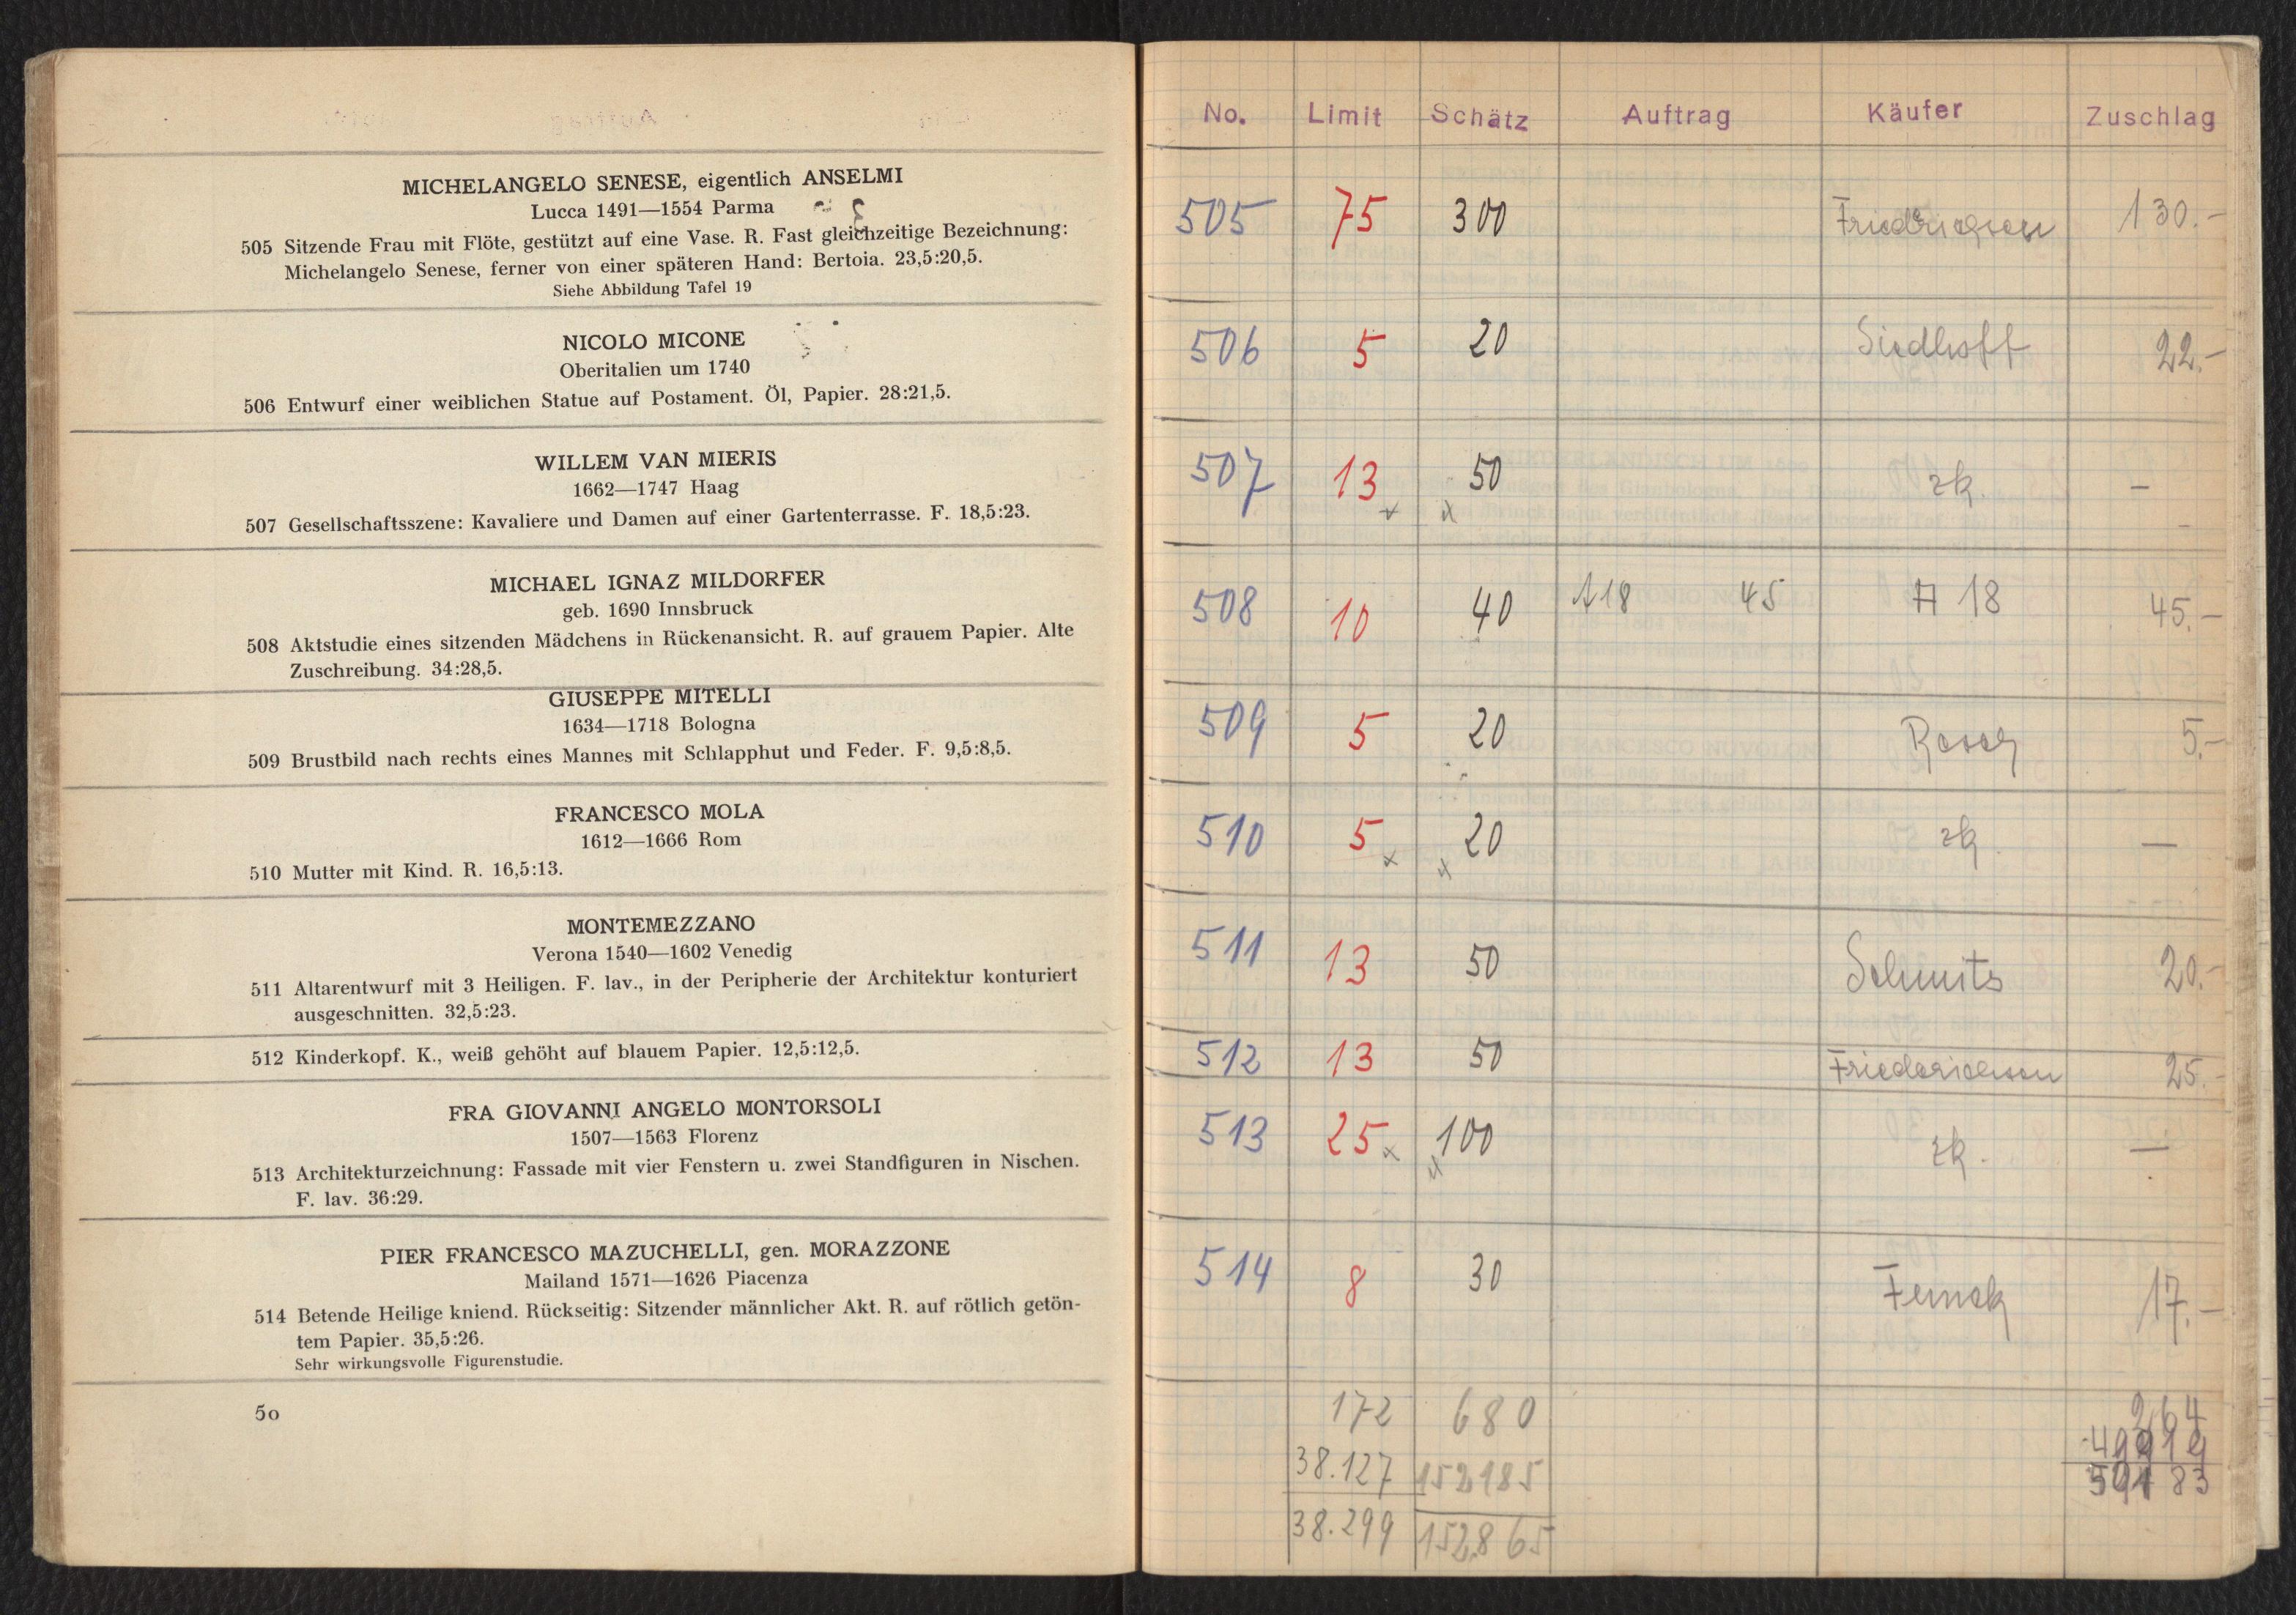 MICHELANGELO SENESE, eigentlich ANSELMI
Lucca 1491—1554 Parma
505 Sitzende Frau mit Flöte, gestützt auf eine Vase. R. Fast gleichzeitige Bezeichnung:
Michelangelo Senese, ferner von einer späteren Hand: Bertoia. 23,5:20,5.
Siehe Abbildung Tafel 19
NICOLO MICONE
Oberitalien um 1740
506 Entwurf einer weiblichen Statue auf Postament. Öl, Papier. 28:21,5.
WILLEM VAN MIERIS
1662—1747 Haag
507 Gesellschaftsszene: Kavaliere und Damen auf einer Gartenterrasse. F. 18,5:23.
MICHAEL IGNAZ MILDORFER
geb. 1690 Innsbruck
508 Aktstudie eines sitzenden Mädchens in Rückenansicht. R. auf grauem Papier. Alte
Zuschreibung. 34:28,5.
GIUSEPPE MITELLI
1634—1718 Bologna
509 Brustbild nach rechts eines Mannes mit Schlapphut und Feder. F. 9,5:8,5.
FRANCESCO MOLA
1612—1666 Rom
510 Mutter mit Kind. R. 16,5:13.
MONTEMEZZANO
Verona 1540—1602 Venedig
511 Altarentwurf mit 3 Heiligen. F. lav., in der Peripherie der Architektur konturiert
ausgeschnitten. 32,5:23.
512 Kinderkopf. K., weiß gehöht auf blauem Papier. 12,5:12,5.
FRA GIOVANNI ANGELO MONTORSOLI
1507—1563 Florenz
513 Architekturzeichnung: Fassade mit vier Fenstern u. zwei Standfiguren in Nischen.
F. lav. 36:29.
PIER FRANCESCO MAZUCHELLI, gen. MORAZZONE
Mailand 1571—1626 Piacenza
514 Betende Heilige kniend. Rückseitig: Sitzender männlicher Akt. R. auf rötlich getön-
tem Papier. 35,5:26.
Sehr wirkungsvolle Figurenstudie.
50
No. Limit Schätz Auftrag Käufer Zuschlag
505 75 300 Friedrichsen 130.-
506 5 20 Siedhoff 22.-
507 13 50 zk. —
508 10 40 A18 45 A 18 45.-
509 5 20 5.-
510 5 20 zk. —
511 13 50 Schmits 20.-
512 13 50 Friederichsen 25.-
513 25 100 zk. —
514 8 30 17.-
172 680 264
38.127 152185 49919
38.299 152.865 50183